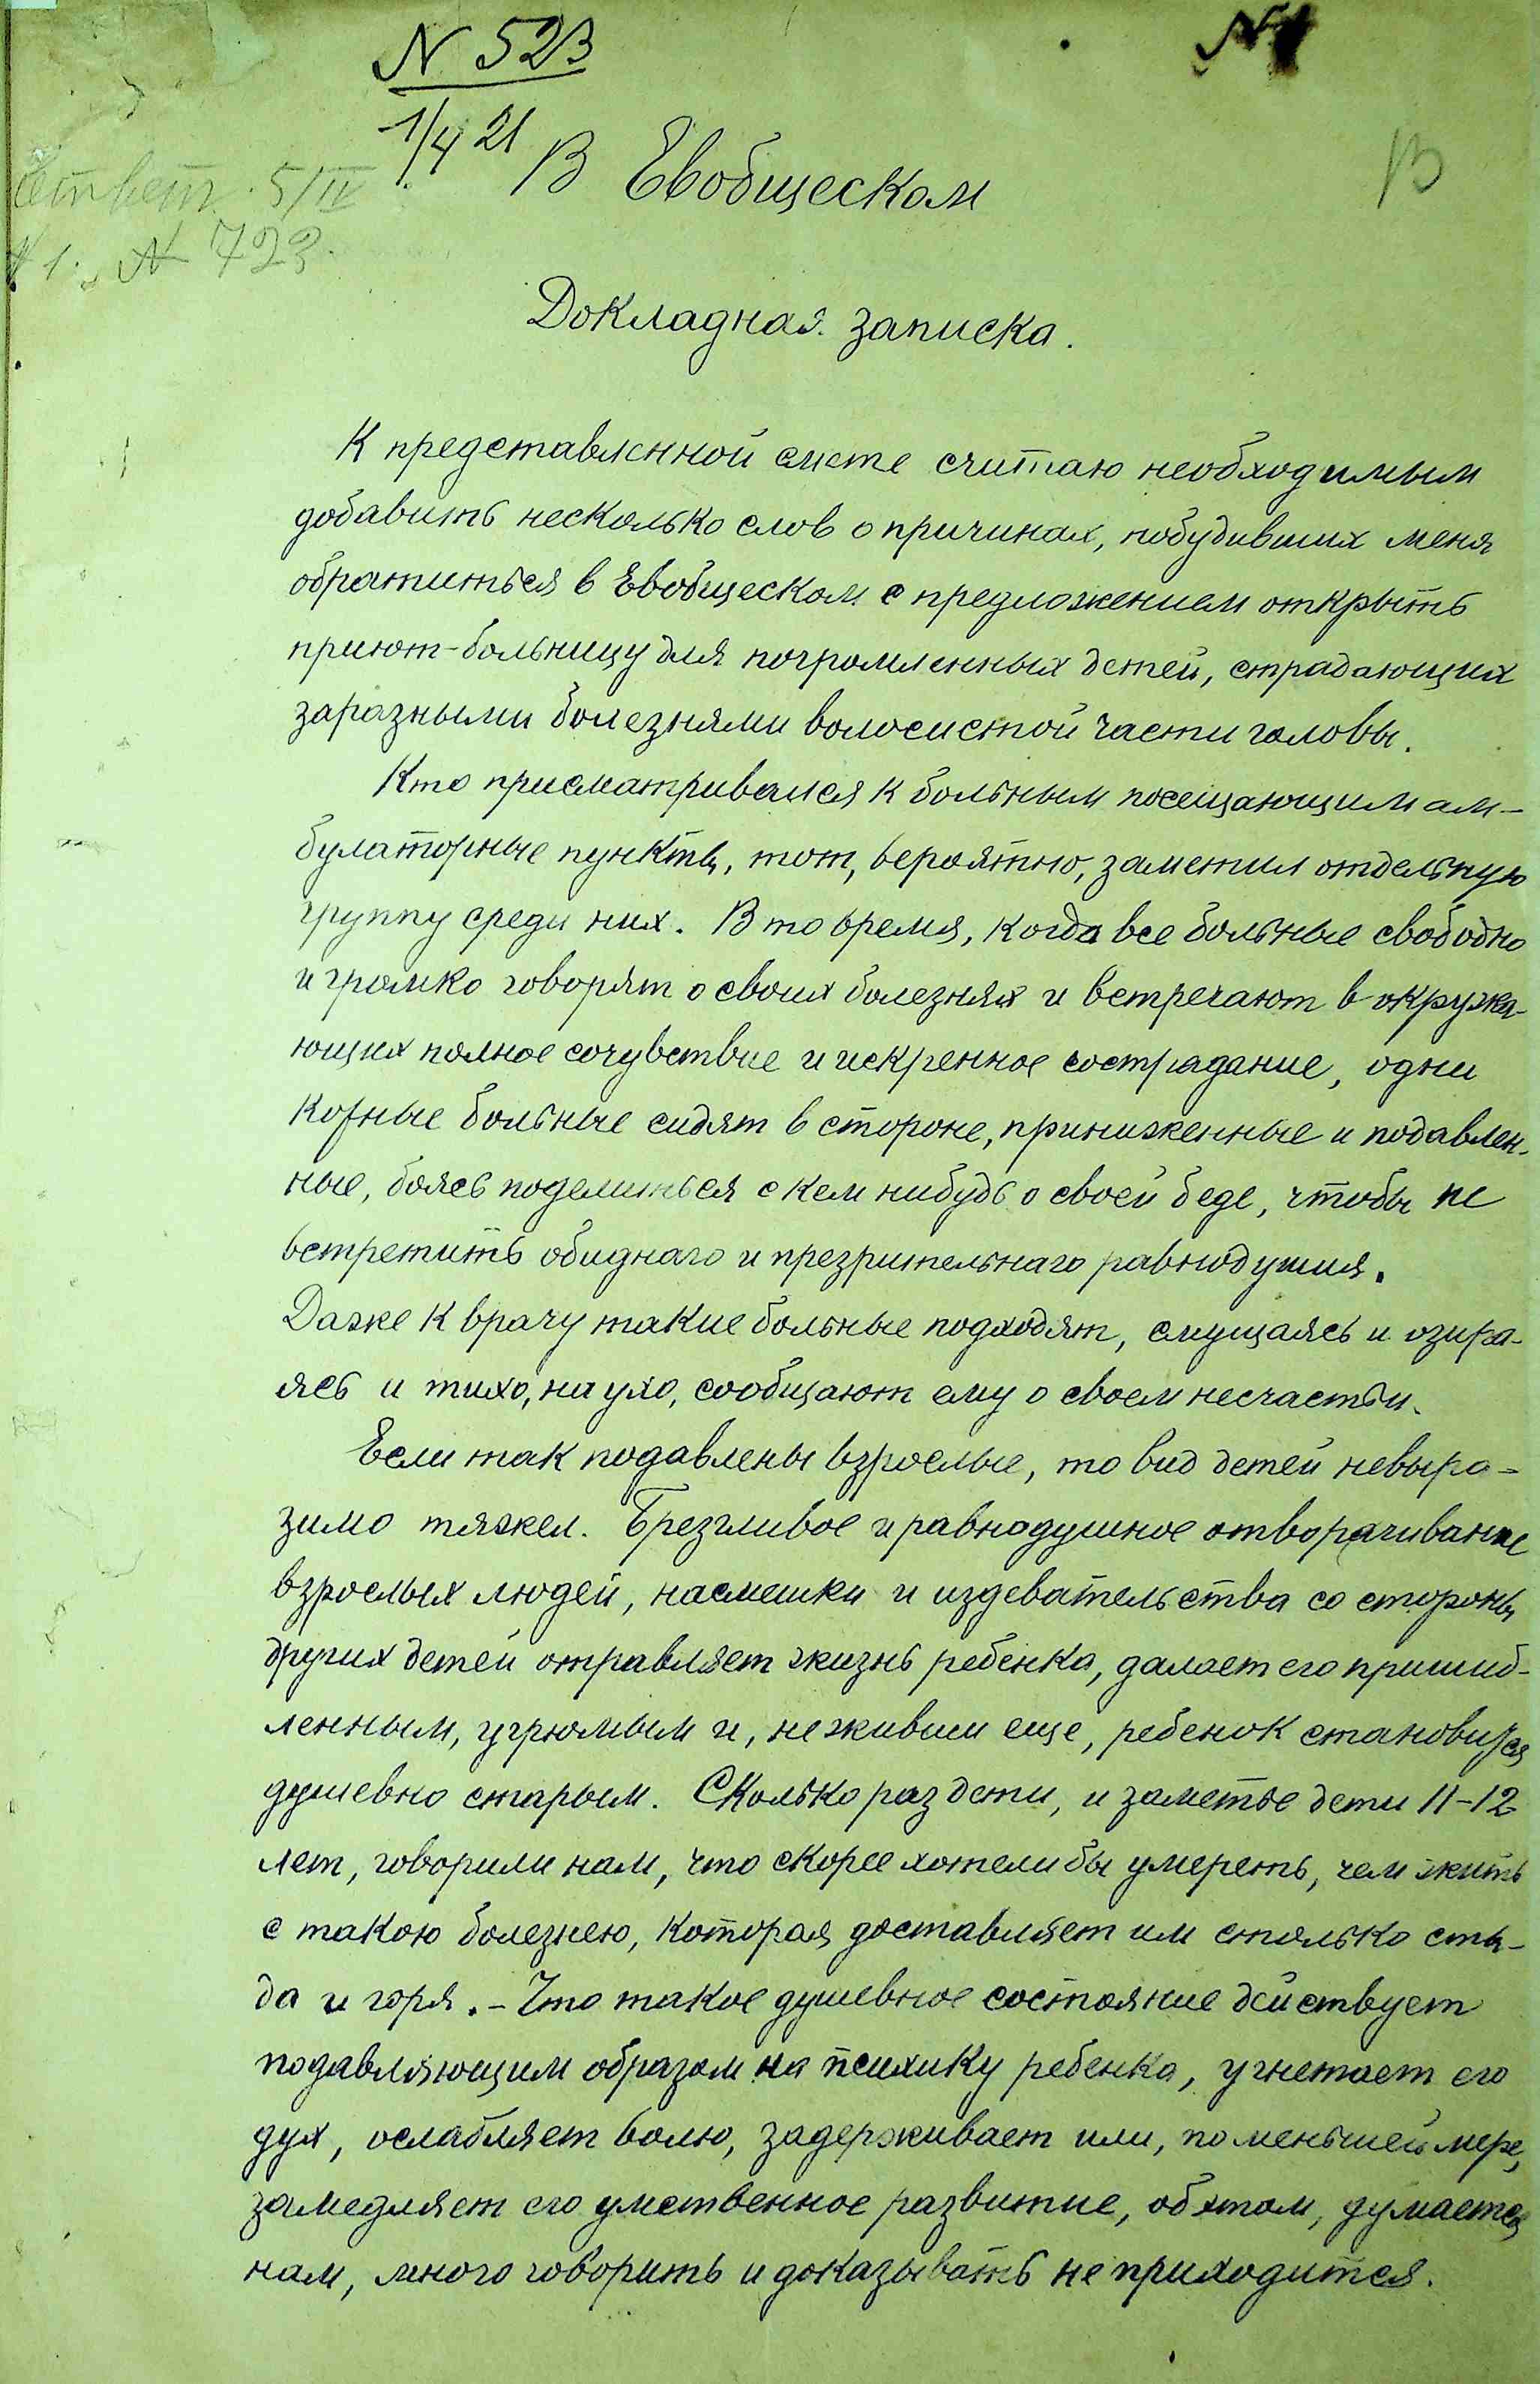 N 523
N 1
1/4 21
В Евобщеском
В
Ответ. 5/IV
N 723.
Докладная записка.
К представленной смете считаю необходимым
добавить несколько слов о причинах, побудивших меня
обратиться в Евобщеском с предложением открыть
приют-больницу для погромленных детей, страдающих
заразными болезнями волосистой части головы.
Кто присматривался к больным посещающим ам-
булаторные пункты, тот, вероятно, заметил отдельную
группу среди них. В то время, когда все больные свободно
и громко говорят о своих болезнях и встречают в окружа-
ющих полное сочувствие и искренное сострадание, одни
кожные больные сидят в стороне, приниженные и подавлен-
ные, боясь поделиться с кем нибудь о своей беде, чтобы не
встретить обиднаго и презрительнаго равнодушия.
Даже к врачу такие больные подходят, смущаясь и озира-
ясь и тихо, на ухо, сообщают ему о своем несчастьи.
Если так подавлены взрослые, то вид детей невыра-
зимо тяжел. Брезгливое и равнодушное отворачивание
взрослых людей, насмешки и издевательства со стороны
других детей отравляет жизнь ребенка, далает его пришиб-
ленным, угрюмым и, не живши еще, ребенок становится
душевно старым. Сколько раз дети, и заметьте дети 11-12
лет, говорили нам, что скорее хотели бы умереть, чем жить
с такою болезнею, которая доставляет им столько сты-
да и горя. - Что такое душевное состояние действует
подавляющим образом на психику ребенка, угнетает его
дух, ослабляет волю, задерживает или, по меньшей мере,
замедляет его умственное развитие, об этом, думается
нам, много говорить и доказывать не приходится.